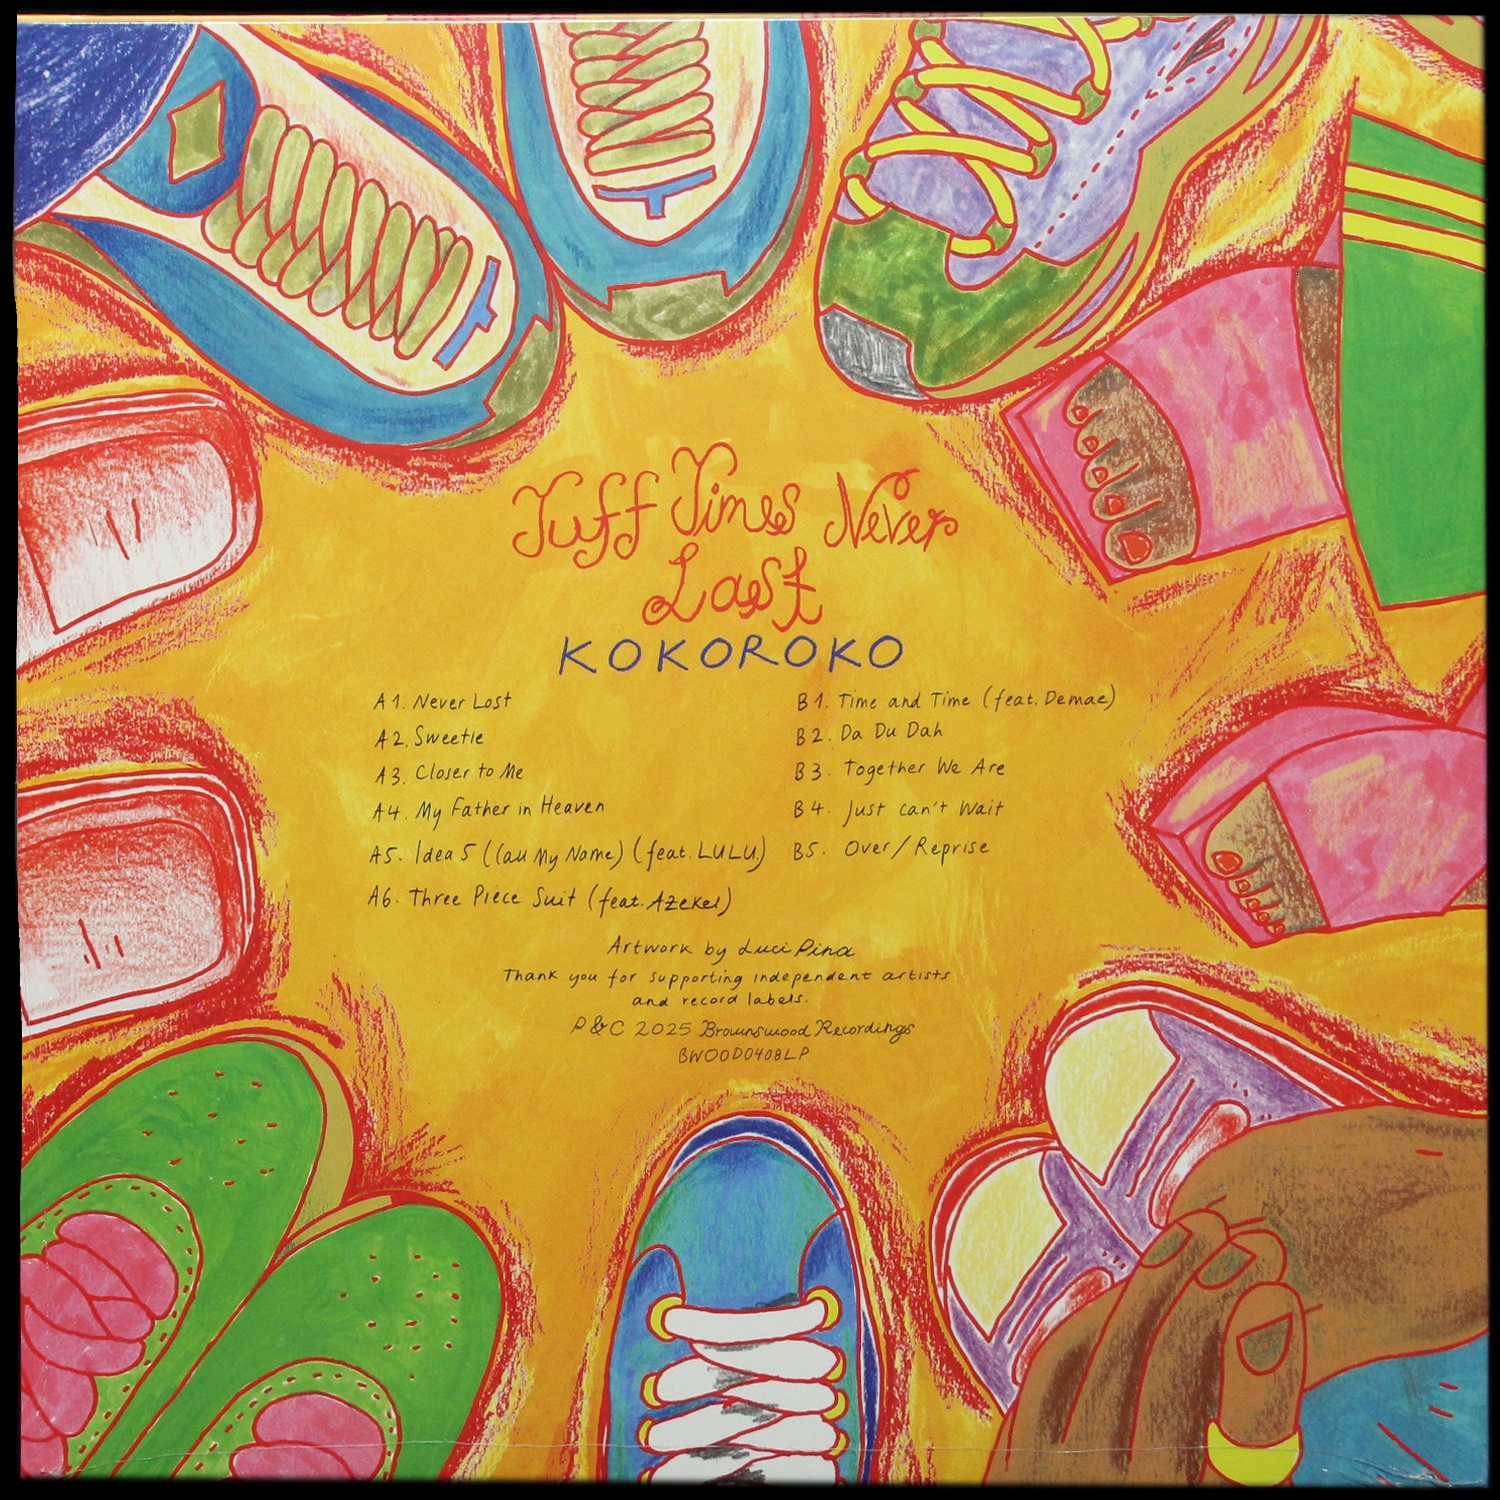 Tuff Times Never
Last
KOKOROKO
A1. Never Lost
A2. Sweetie
A3. Closer to Me
A4. My Father in Heaven
A5. Idea 5 (Call My Name) (feat. LULU.)
A6. Three Piece Suit (feat. Azekel)
B1. Time and Time (feat. Demae)
B2. Da Du Dah
B3. Together We Are
B4. Just can't Wait
B5. Over / Reprise
Artwork by Luci Pina
Thank you for supporting independent artists
and record labels.
P & C 2025 Brownswood Recordings
BWOOD0408LP